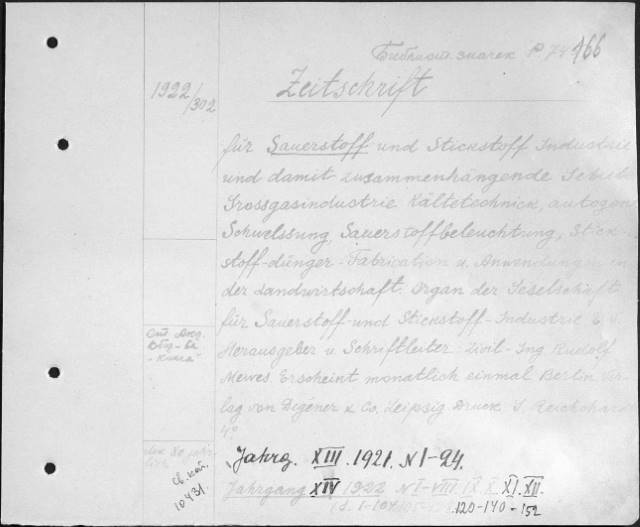 Библиот. значек P 74/166
1922/302
Zeitschrift
für Sauerstoff und Stickstoff Industrie
und damit zusammenhängende Gebiete
Grossgasindustrie Kältetechnick, autogen
Schweissung, Sauerstoffbeleuchtung, Stick-
stoff-dünger-Fabrication u. Anwendung in
der Landwirtschaft. Organ der Geselschaft
für Sauerstoff-und Stickstoff-Industrie E. V.
Herausgeber u Schriftleiter Zivil-Ing Rudolf
Mewes. Erscheint monatlich einmal Berlin Ver-
lag von Degener & Co, Leipzig Druck
4°
Jahrg. XIII. 1921. N 1-24.
Jahrgang XIV 1922 N I-VIII IX X XI. XII.
120-140-152
Св. кат.
10431.